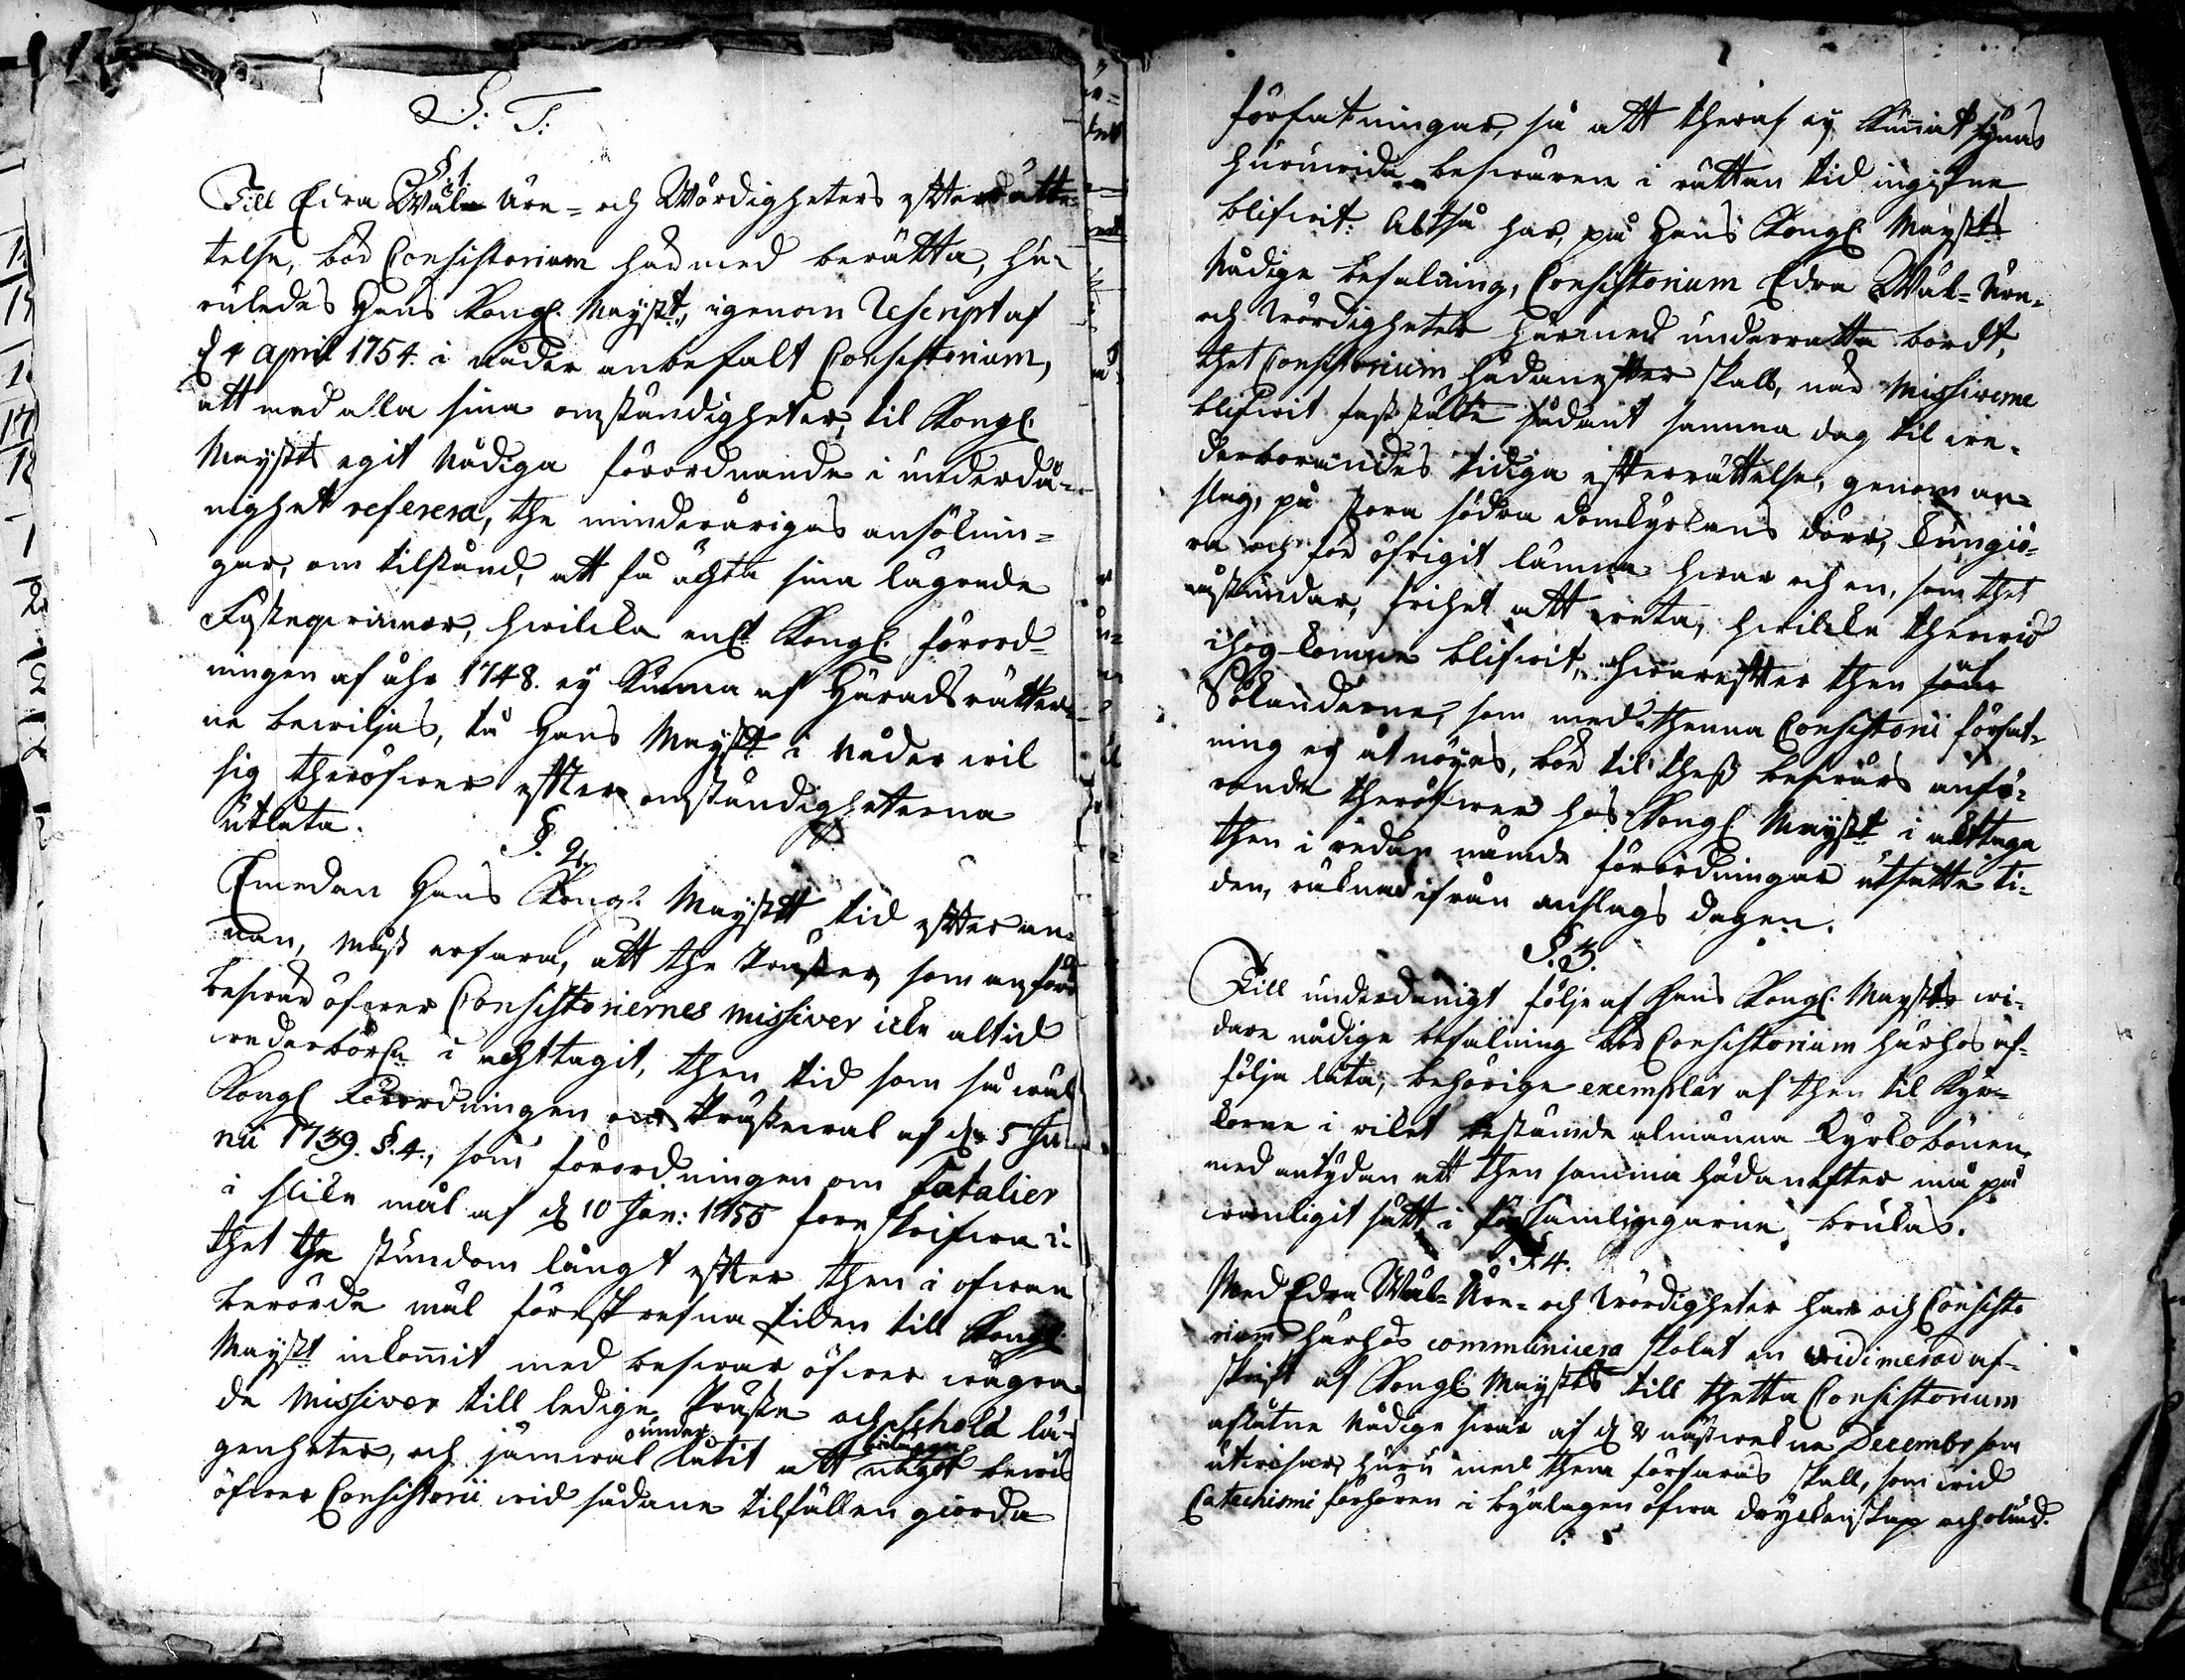 S: T:
§. 1.
Till Edra Wäl- Äre- och Wördigheters efterrätte-
telse, bör Consistorium härmed berätta, hu-
ruledes Hans Kongl. Mayst:t, igenom Rescript af
d 4 April 1754. i nåder anbefalt Consistorium,
att med alla sina omständigheter, til Kongl.
Mayst:ts egit Nådiga förordnande i underdå-
nighet referera, the minderårigas ansöknin-
gar, om tilstånd, att få ächta sina lägrade
Fästeqvinnor, hwilcka enl:t Kongl. förord-
ningen af åhr 1748. ej kunna af Häradsrätter-
ne bewiljas, då Hans Mayst:t i Nåder wil
sig theröfwer efter omständigheterna
utlåta.
§. 2.
Emedan Hans Kongl. Mayst:t tid efter an-
nan, måst erfara, att the Präster, som anföra
beswär öfwer Consistoriernes Missiver icke altid
wederbörl:n i achttagit, then tid som så wäl
Kongl Förordningen om Prästewal af d. 5 Ju-
nii 1739. §. 4., som förordningen om Fatalier
i slike mål af d 10 Jan: 1755 föreskrifwa i-
thet the stundom långt efter then i ofwan
berörde mål föreskrefna tiden till Kongl.
Mayst:t inkommit med beswär öfwer wägra-
de Missiver till ledige Präste och Schole lä-
genheter, och jämwäl underlåtit att bilägga något bewis
öfwer Consistorii wid sådane tilfällen giorda
författningar, så att theraf ej kunnat synas
huruwida beswären i rättan tid ingifne
blifwit: Altså har, på Hans Kongl Mayst:ts
Nådige befalning, Consistorium Edra Wäl- Äre-
och Wördigheter härmed underrätta bordt,
thet Consistorium hädanefter skall, när Missiverne
blifwit fastställte sådant samma dag til we-
derbörandes tidiga efterrättelse, genom an-
slag, på stora södra domkyrkans dörr, kungiö-
ra och för öfrigit lämna hwar och en, som thet
åstundar, frihet att weta, hwilcke therwid
ihog komne blifwit, hwarefter then af
Sökanderne, som med thenna Consistorii författ-
ning ej åtnöjes, bör til thess beswärs anfö-
rande theröfwer hos Kongl Mayst:t i achttaga
then i redan nämde förordningar utsatte ti-
den, räknad ifrån anslags dagen.
§. 3.
Till underdånigt följe af Hans Kongl. Mayst:ts wi-
dare nådige befalning bör Consistorium härhos af-
följa låta, behörige exemplar af then til Kyr-
korne i riket bestämde almänna Kyrkobönen,
med antydan att then samma hädanefter må på
wanligit sätt i församlingarne brukas.
§. 4.
Med Edra Wäl- Äre- och Wördigheter har och Consisto
rium härhos communicera skolat en vidimerad af-
skrift af Kongl Mayst:ts till thetta Consistorium
aflåtne Nådige swar af d 8 nästwekne Decembr som
utwisar, huru med them förfaras skall, som wid
Catechismi förhören i byalagen öfwa dryckenskap och oliud.